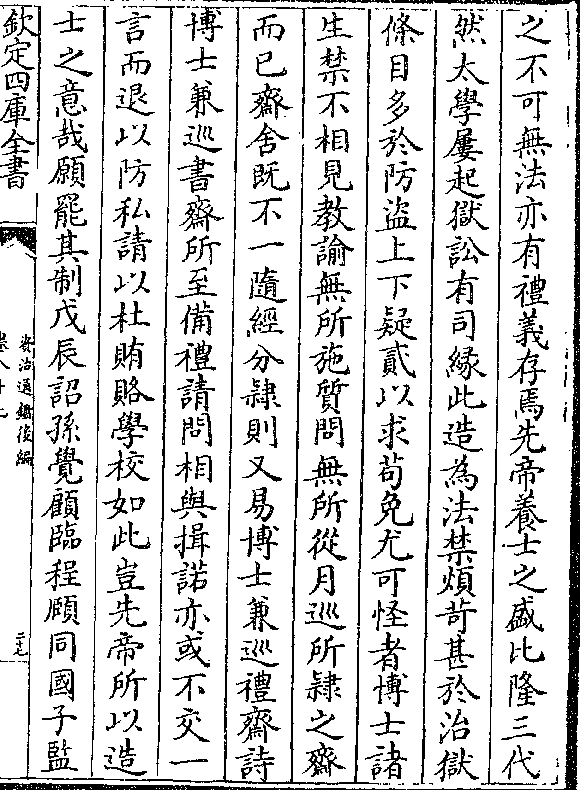 之不可無法亦有禮義存焉先帝養士之盛比隆三代
然太學屢起獄訟有司緣此造為法禁煩苛甚於治獄
條目多於防盜上下疑貳以求苟免尤可怪者博士諸
生禁不相見教諭無所施質問無所從月巡所隷之齋
而已齋舍既不一隨經分隷則又易博士兼巡禮齋詩
博士兼巡書齋所至備禮請問相與揖諾亦或不交一
言而退以防私請以杜賄賂學校如此豈先帝所以造
士之意哉願罷其制戊辰詔孫覺顧臨程頤同國子監
欽定四庫全書
資治通鑑後編